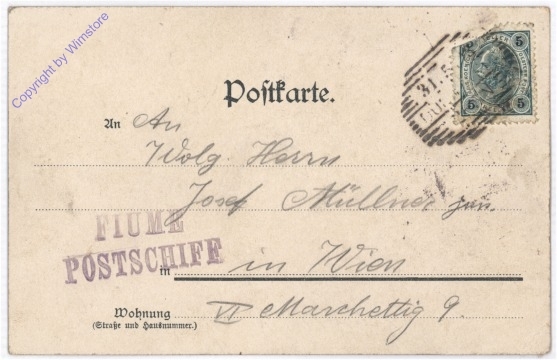 Copyright by Wimstore
5 5
31.5
Postkarte.
An An
Wolg. Herrn
Josef Müllner jun.
FIUME
POSTSCHIFF
in in Wien
Wohnung VI Marchettig 9.
(Straße und Hausnummer.)